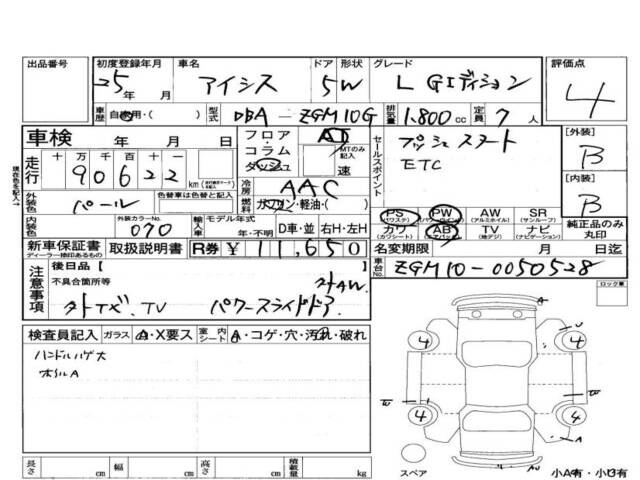 出品番号 初度登録年月 車名 ドア 形状 グレード 評価点
25年 月 アイシス 5W L Gエディション 4
車歴 自家用・( ) 型式 DBA-ZGM10G 排気量 1,800cc 定員 7人
車検 年 月 日 フロア・コラム ダッシュ AT MTのみ記入 速 セールスポイント プッシュスタート ETC
[外装] B
[内装] B
走行 十万千百十一 90622 km
冷房 AAC
現在色を記入→
外装色 パール 色替車は色替と記入 燃料 ガソリン・軽油・( )
PS (パワステ) PW (パワーウインドウ) AW (アルミホイル) SR (サンルーフ)
カワ (カワシート) AB (エアバッグ) TV (地デジ) ナビ (ナビゲーション)
純正品のみ丸印
内装色 外装カラーNo. 070 輸入車 モデル年式 年・不明 D車・並 右H・左H
新車保証書 ディーラー捺印あるもの 取扱説明書 R券 ¥11,650 名変期限 月 日迄
車台No. ZGM10-0050528
注意事項 後日品[ ]
不具合箇所等 外AW.
外ナビ、TV パワースライドドア
ロック車
検査員記入 ガラス A・X要ス 室内シート A・コゲ・穴・汚れ・破れ
ハンドルハゲ大
ホイルA
A
U
4 4
W W
4 4
A
スペア
AU
小A有・小B有
長さ cm 幅 cm 高さ cm 積載量 kg